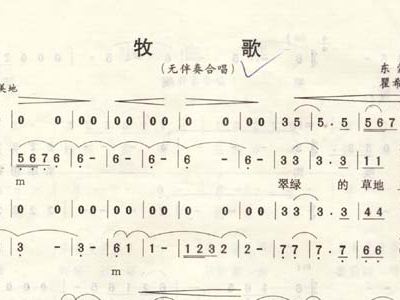 牧 歌
(无伴奏合唱)
东
美地
瞿希
0 0 | 0 0 | 0 0 | 0 0 | 0 0 | 3 5 | 5. 5 | 5 6 7
5 6 7 6 | 6 - | 6 - | 6 | 6 - | 3 3 | 3. 3 | 1 1
m 翠绿 的 草地
0 0 | 0 0 | 0 0 | 0 0 | 0 0 | 3 3 | 3. 3 | 4 4
3 - | 3 - | 6 1 | 1 - | 1 2 3 2 | 2 - | 7 7 | 7. 7 | 6 6
m